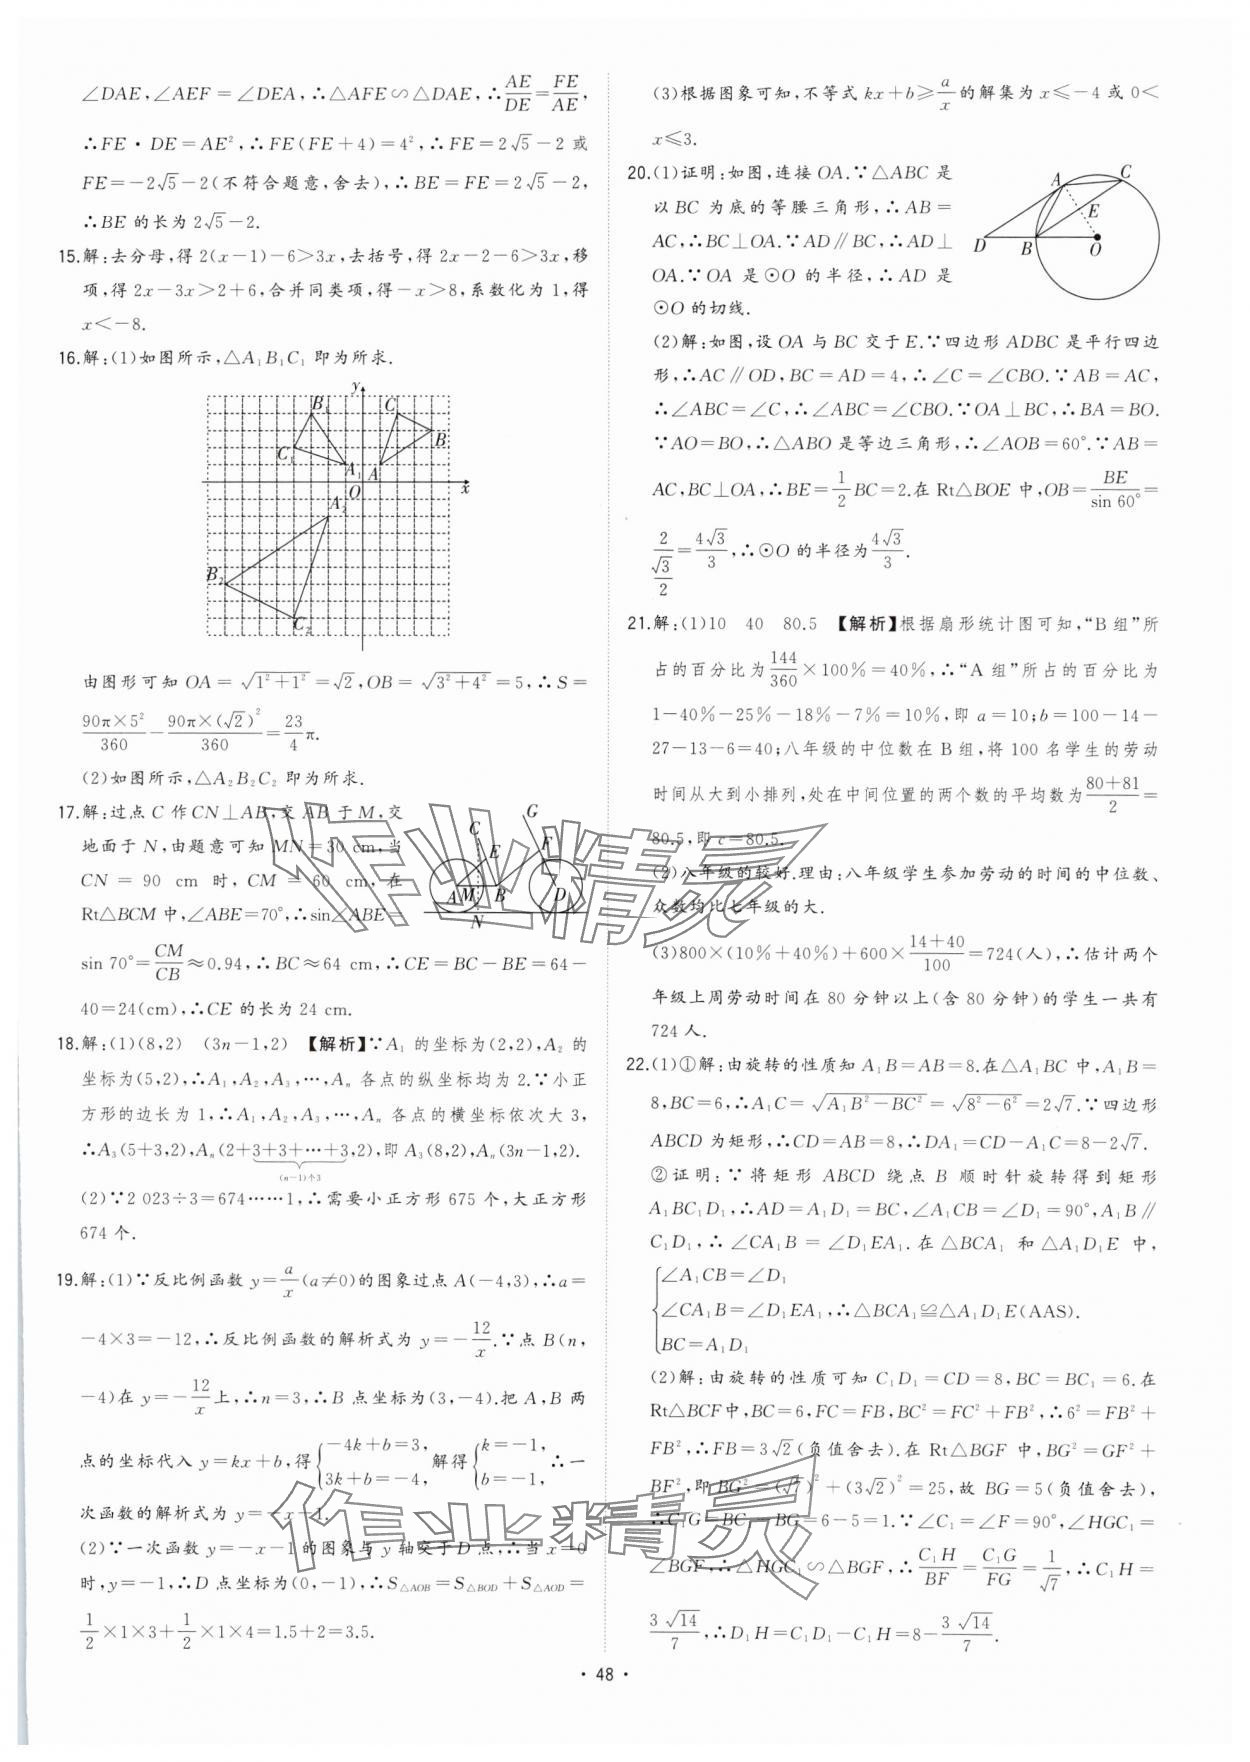 ∠DAE,∠AEF=∠DEA,∴△AFE∽△DAE,∴AE/DE=FE/AE,
∴FE·DE=AE²,∴FE(FE+4)=4²,∴FE=2√5-2或
FE=-2√5-2(不符合题意,舍去),∴BE=FE=2√5-2,
∴BE的长为2√5-2.
15.解:去分母,得2(x-1)-6>3x,去括号,得2x-2-6>3x,移
项,得2x-3x>2+6,合并同类项,得-x>8,系数化为1,得
x<-8.
16.解:(1)如图所示,△A₁B₁C₁即为所求.
y
B₁ C
C₁ B
A₁ A
O x
A₂
B₂
C₂
由图形可知OA=√(1²+1²)=√2,OB=√(3²+4²)=5,∴S=
90π×5²/360-90π×(√2)²/360=23/4π.
(2)如图所示,△A₂B₂C₂即为所求.
17.解:过点C作CN⊥AB,交AB于M,交
地面于N,由题意可知MN=30 cm,当
CN=90 cm时,CM=60 cm,在
Rt△BCM中,∠ABE=70°,∴sin∠ABE=
G
C E F
A M B D
N
sin 70°=CM/CB≈0.94,∴BC≈64 cm,∴CE=BC-BE=64-
40=24(cm),∴CE的长为24 cm.
18.解:(1)(8,2) (3n-1,2) 【解析】∵A₁的坐标为(2,2),A₂的
坐标为(5,2),∴A₁,A₂,A₃,…,Aₙ各点的纵坐标均为2.∵小正
方形的边长为1,∴A₁,A₂,A₃,…,Aₙ各点的横坐标依次大3,
∴A₃(5+3,2),Aₙ(2+3+3+…+3,2),即A₃(8,2),Aₙ(3n-1,2).
(n-1)个3
(2)∵2 023÷3=674……1,∴需要小正方形675个,大正方形
674个.
19.解:(1)∵反比例函数y=a/x(a≠0)的图象过点A(-4,3),∴a=
-4×3=-12,∴反比例函数的解析式为y=-12/x.∵点B(n,
-4)在y=-12/x上,∴n=3,∴B点坐标为(3,-4).把A,B两
点的坐标代入y=kx+b,得{-4k+b=3, 3k+b=-4,解得{k=-1, b=-1,∴一
次函数的解析式为y=-x-1.
(2)∵一次函数y=-x-1的图象与y轴交于D点,∴当x=0
时,y=-1,∴D点坐标为(0,-1),∴S△AOB=S△BOD+S△AOD=
1/2×1×3+1/2×1×4=1.5+2=3.5.
(3)根据图象可知,不等式kx+b≥a/x的解集为x≤-4或0<
x≤3.
20.(1)证明:如图,连接OA.∵△ABC是
以BC为底的等腰三角形,∴AB=
AC,∴BC⊥OA.∵AD∥BC,∴AD⊥
OA.∵OA是⊙O的半径,∴AD是
⊙O的切线.
A C
E
D B O
(2)解:如图,设OA与BC交于E.∵四边形ADBC是平行四边
形,∴AC∥OD,BC=AD=4,∴∠C=∠CBO.∵AB=AC,
∴∠ABC=∠C,∴∠ABC=∠CBO.∵OA⊥BC,∴BA=BO.
∵AO=BO,∴△ABO是等边三角形,∴∠AOB=60°.∵AB=
AC,BC⊥OA,∴BE=1/2BC=2.在Rt△BOE中,OB=BE/sin 60°=
2/(√3/2)=4√3/3,∴⊙O的半径为4√3/3.
21.解:(1)10 40 80.5 【解析】根据扇形统计图可知,“B组”所
占的百分比为144/360×100%=40%,∴“A组”所占的百分比为
1-40%-25%-18%-7%=10%,即a=10;b=100-14-
27-13-6=40;八年级的中位数在B组,将100名学生的劳动
时间从大到小排列,处在中间位置的两个数的平均数为(80+81)/2=
80.5,即c=80.5.
(2)八年级的较好.理由:八年级学生参加劳动的时间的中位数、
众数均比七年级的大.
(3)800×(10%+40%)+600×(14+40)/100=724(人),∴估计两个
年级上周劳动时间在80分钟以上(含80分钟)的学生一共有
724人.
22.(1)①解:由旋转的性质知A₁B=AB=8.在△A₁BC中,A₁B=
8,BC=6,∴A₁C=√(A₁B²-BC²)=√(8²-6²)=2√7.∵四边形
ABCD为矩形,∴CD=AB=8,∴DA₁=CD-A₁C=8-2√7.
②证明:∵将矩形ABCD绕点B顺时针旋转得到矩形
A₁BC₁D₁,∴AD=A₁D₁=BC,∠A₁CB=∠D₁=90°,A₁B∥
C₁D₁,∴∠CA₁B=∠D₁EA₁.在△BCA₁和△A₁D₁E中,
∠A₁CB=∠D₁
∠CA₁B=∠D₁EA₁,∴△BCA₁≌△A₁D₁E(AAS).
BC=A₁D₁
(2)解:由旋转的性质可知C₁D₁=CD=8,BC=BC₁=6.在
Rt△BCF中,BC=6,FC=FB,BC²=FC²+FB²,∴6²=FB²+
FB²,∴FB=3√2(负值舍去).在Rt△BGF中,BG²=GF²+
BF²,即BG²=(√7)²+(3√2)²=25,故BG=5(负值舍去),
∴C₁G=BC₁-BG=6-5=1.∵∠C₁=∠F=90°,∠HGC₁=
∠BGF,∴△HGC₁∽△BGF,∴C₁H/BF=C₁G/FG=1/√7,∴C₁H=
3√14/7,∴D₁H=C₁D₁-C₁H=8-3√14/7.
·48·
作业精灵
作业精灵